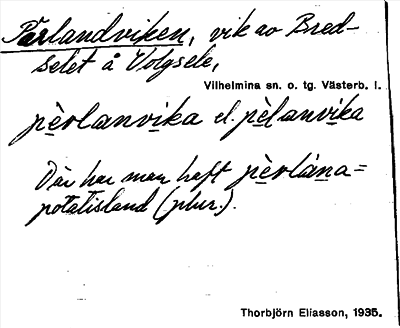 Pärlandviken, vik av Bred-
selet å Volgsele,
Vilhelmina sn. o. tg. Västerb. l.
pèrlanvika el. pèlanvika
Där har man haft pèrlána=
potatisland (plur.).
Thorbjörn Eliasson, 1935.